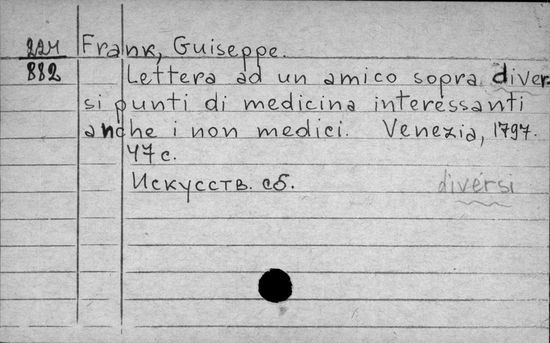 224 Frank, Guiseppe.
882 Lettera ad un amico sopra diver-
si punti di medicina interessanti
anche i non medici. Venezia, 1797.
47 с.
Искусств. сб. diversi